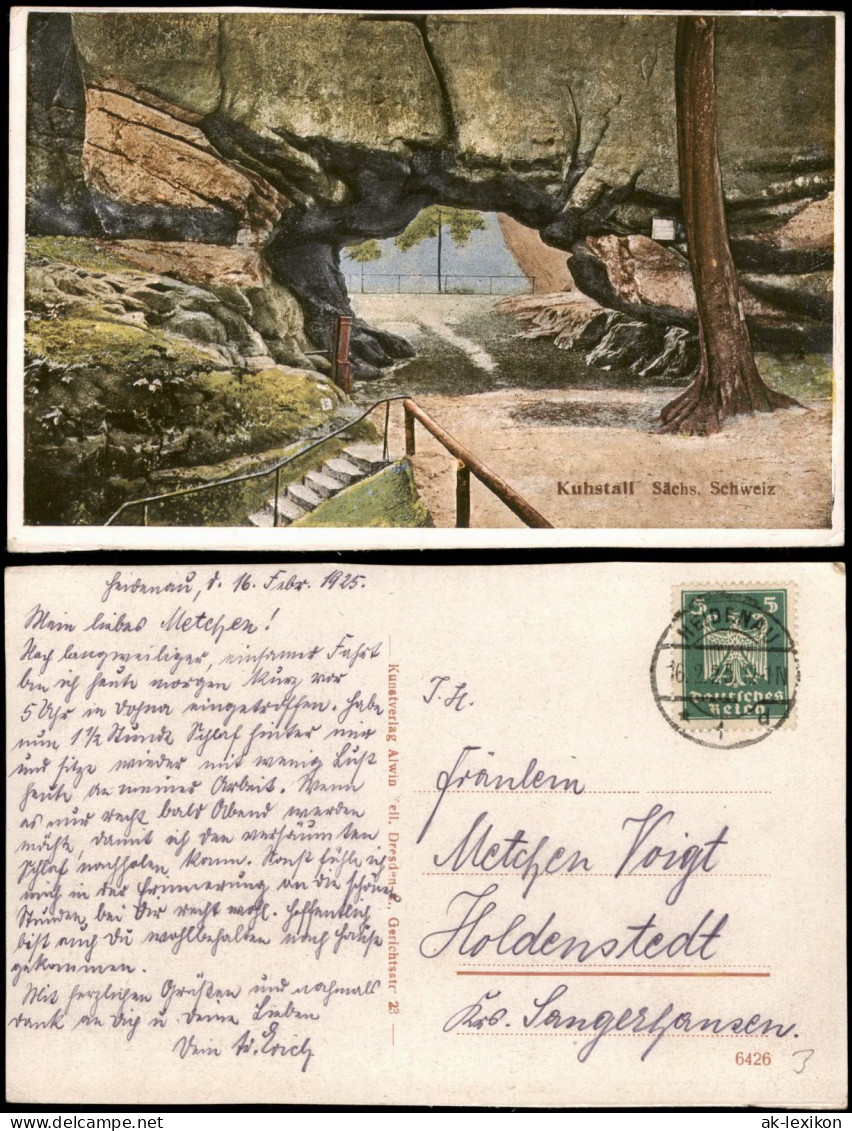 Kuhstall Sächs. Schweiz
Heidenau, d. 16. Febr. 1925.
Mein liebes Metchen!
Nach langweiliger, einsamer Fahrt
bin ich heute morgen kurz vor
5 Uhr in Dohna eingetroffen. Habe
nun 1½ Stunde Schlaf hinter mir
und sitze wieder mit wenig Lust
heute an meiner Arbeit. Wenn
es nur recht bald Abend werden
möchte, damit ich den versäumten
Schlaf nachholen kann. Sonst fühle ich
mich in der Erinnerung an die schönen
Stunden bei Dir recht wohl. Hoffentlich
bist auch Du wohlbehalten nach Hause
gekommen.
Mit herzlichen Grüßen und nochmals
Dank an Dich u. Deine Lieben
Dein Erich
Kunstverlag Alwin Dresden Gerichtsstr 23
5 5
HEIDENAU
16.2.25
Deutsches
Reich
1 d
T. H.
Fräulein
Metchen Voigt
Holdenstedt
Krs. Sangerhausen.
6426
3
ak-lexikon.com